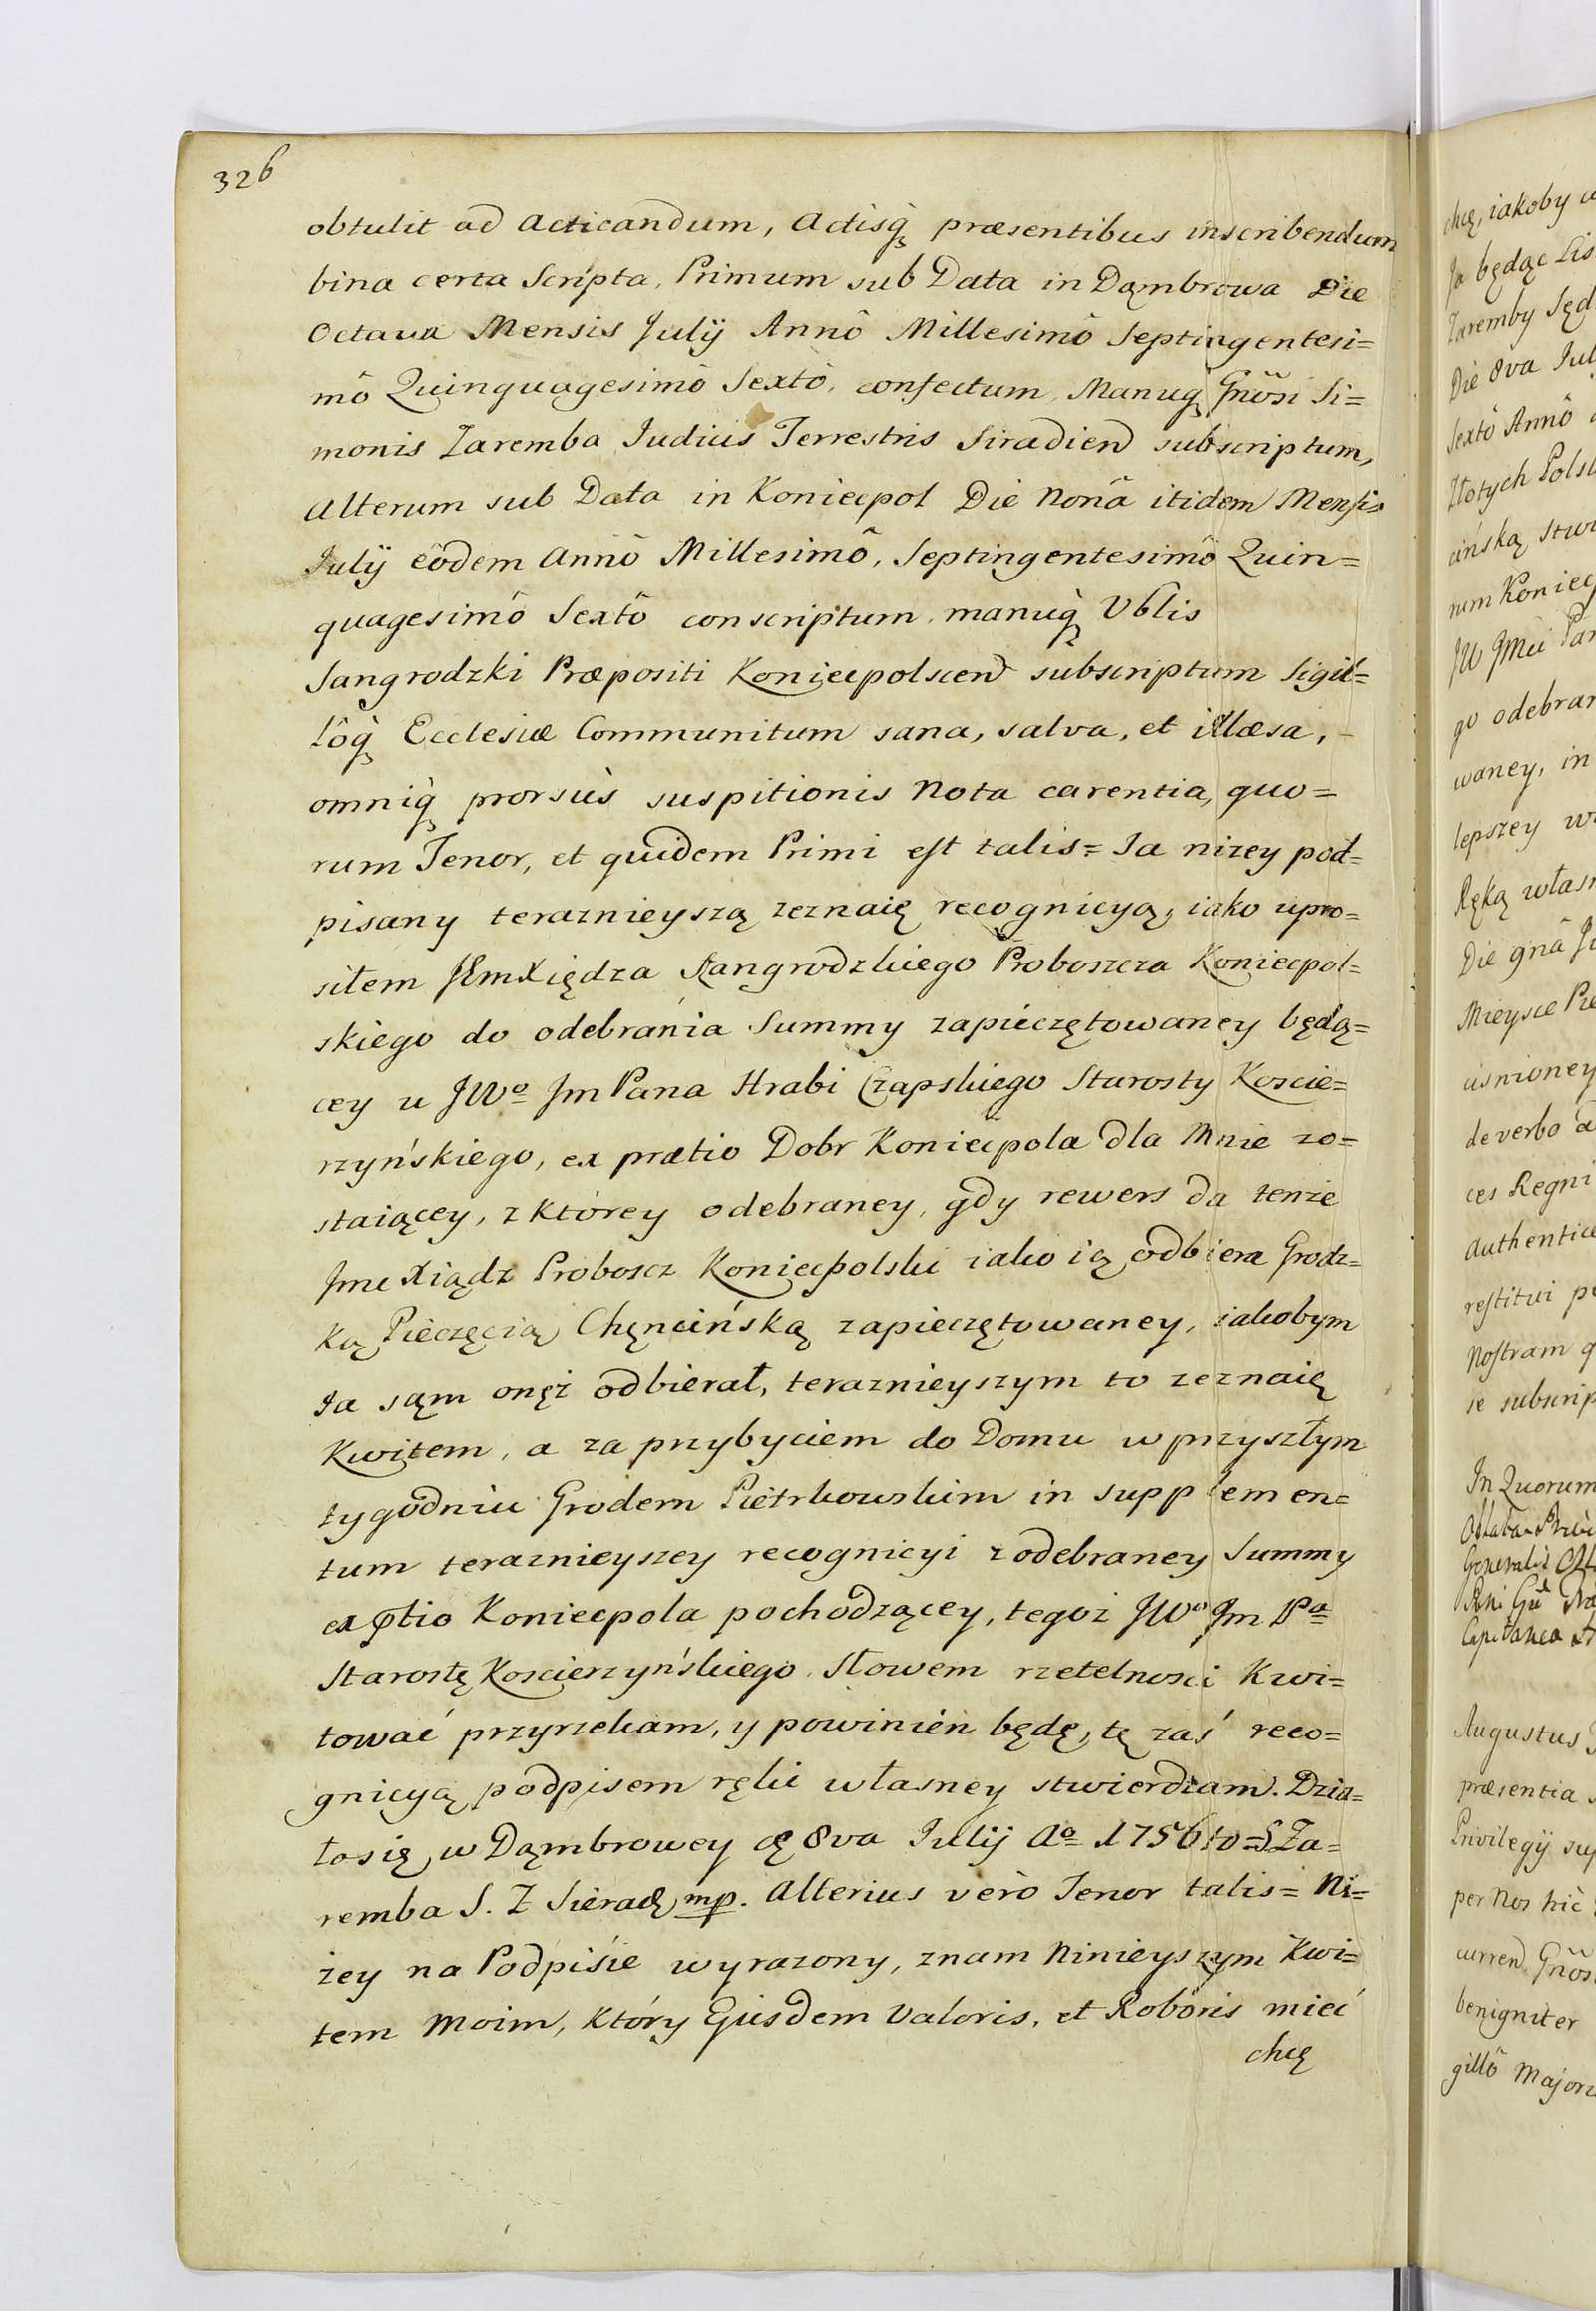 326
obtulit ad acticandum, actisq̀ præsentibus inscribendum
bina certa Scripta, Primum sub Data in Dąmbrowa Die
Octava Mensis Julÿ Annô Millesimô Septingentesi=
mô Quinquagesimô Sextô, confectum, Manuq̀ Gnôsi Si=
monis Zaremba Judicis Terrestris Siradien subscriptum,
alterum sub Data in Koniecpol Die Nonâ itidem Mensis
Julÿ eôdem annô Millesimô, Septingentesimô Quin=
quagesimô Sextô conscriptum, manuq̀ Vblis
Sangrodzki Præpositi Koniecpolscen subscriptum Sigil=
lôq̀ Ecclesiæ Communitum sana, salva, et illæsa,
omniq̀ prorsùs suspitionis Nota carentia, quo=
rum Tenor, et quidem Primi est talis = Ja nizey pod=
pisany teraznieyszą zeznaię recognicyą, iako upro=
siłem JEmXiędza Xangrodzkiego Proboszcza Koniecpol=
skiego do odebránia Summy zapieczętowaney będą=
cey u JWº Jm Pana Hrabi Czapskiego Starosty Koscie=
rzyńskiego, ex prætio Dobr Koniecpola dla Mnie zo=
staiącey, z którey odebraney, gdy rewers da tenze
Jmc Xiądz Proboscz Koniecpolski iako ią odbiera Grodz=
ką Pieczęcią Chęncińską zapieczętowaney, iakobym
Ja sąm onęż odbierał, teraznieyszym to zeznaię
Kwitem, a za przybyciem do Domu w przyszłym
tygodniu Grodem Piotrkowskim in supplemen=
tum teraznieyszey recognicyi z odebraney Summy
ex ptio Koniecpola pochodzącey, tegoz JWº Jm Pª
Starostę Koscierzyńskiego Słowem rzetelnosci Kwi=
tować przyrzekam, y powinien będę, tę zaś reco=
gnicyą podpisem ręki własney stwierdzam. Dzia=
ło się w Dąmbrowey d 8va Julij Aº 1756to = S. Za=
remba S. Z Sierad mp. Alterius verò Tenor talis = Ni=
zey na Podpisie wyrazony, znam Ninieyszym Kwi=
tem Moim, który Ejusdem Valoris, et Roboris mieć
chcę
chcę, iakoby
Ja będąc
Zaremby
Die 8va
Sextô Annô
Złotych
cińską
num
JW JMci
go
waney, in
lepszey
Ręką
Die 9nâ
Mieysce
cisnioney
de verbo
ces Regni
authentice
restitui
Nostram
se
In Quorum
Oblata
Generalis
Capitanea
Augustus
præsentia
Privilegÿ
per Nos hic
curren
benigniter
gillô